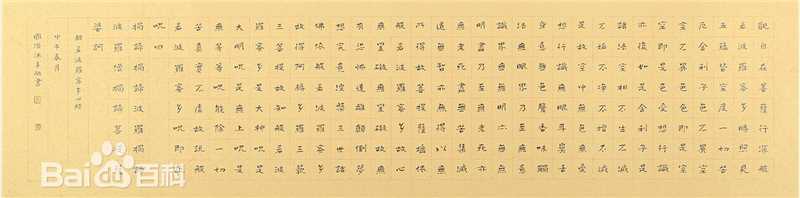 觀自在菩薩行深般
若波羅蜜多時照見
五蘊皆空度一切苦
厄舍利子色不異空
空不異色色即是空
空即是色受想行識
亦復如是舍利子是
諸法空相不生不滅
不垢不淨不增不減
是故空中無色無受
想行識無眼耳鼻舌
身意無色聲香味觸
法無眼界乃至無意
識界無無明亦無無
明盡乃至無老死亦
無老死盡無苦集滅
道無智亦無得以無
所得故菩提薩埵依
般若波羅蜜多故心
無罣礙無罣礙故無
有恐怖遠離顛倒夢
想究竟涅槃三世諸
佛依般若波羅蜜多
故得阿耨多羅三藐
三菩提故知般若波
羅蜜多是大神呪是
大明呪是無上呪是
無等等呪能除一切
苦真實不虛故說般
若波羅蜜多呪即說
呪曰
揭諦揭諦波羅揭諦
波羅僧揭諦菩提薩
婆訶
般若波羅蜜多心經
甲午春月
Bai百科